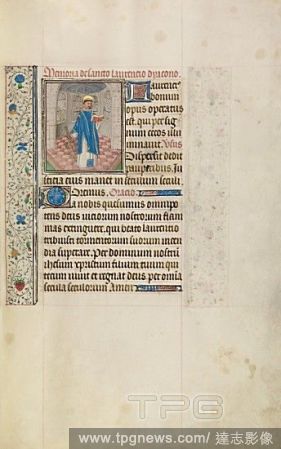 Memoria de sancto laurencio dyacono.
Laurenci
bonum
opus operatus
est. qui per sig
num crucis
illu
minavit. Vsus
Dispersit dedit
pauperibus. Ju
sticia eius manet in seculum seculi.
Oremus. Oracio.
Da nobis quesumus omnipo
tens deus viciorum nostrorum flam
mas extinguere. qui beato laurencio
tribuisti tormentorum suorum incen
dia superare. Per dominum nostrum
filium tuum qui
tecum vivit et regnat deus per omnia
secula seculorum Amen
TPG
www.tpgnews.com/ 達志影像